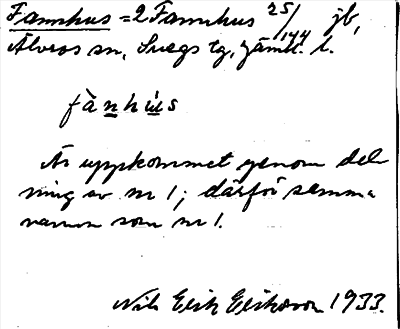 Fannhus = 2 Fannhus 25/144 jb,
Älvros sn, Svegs tg, Jämtl. l.
fànhús
Är uppkommet genom del-
ning av nr 1; därför samma
namn som nr 1.
Nils Erik Eriksson 1933.